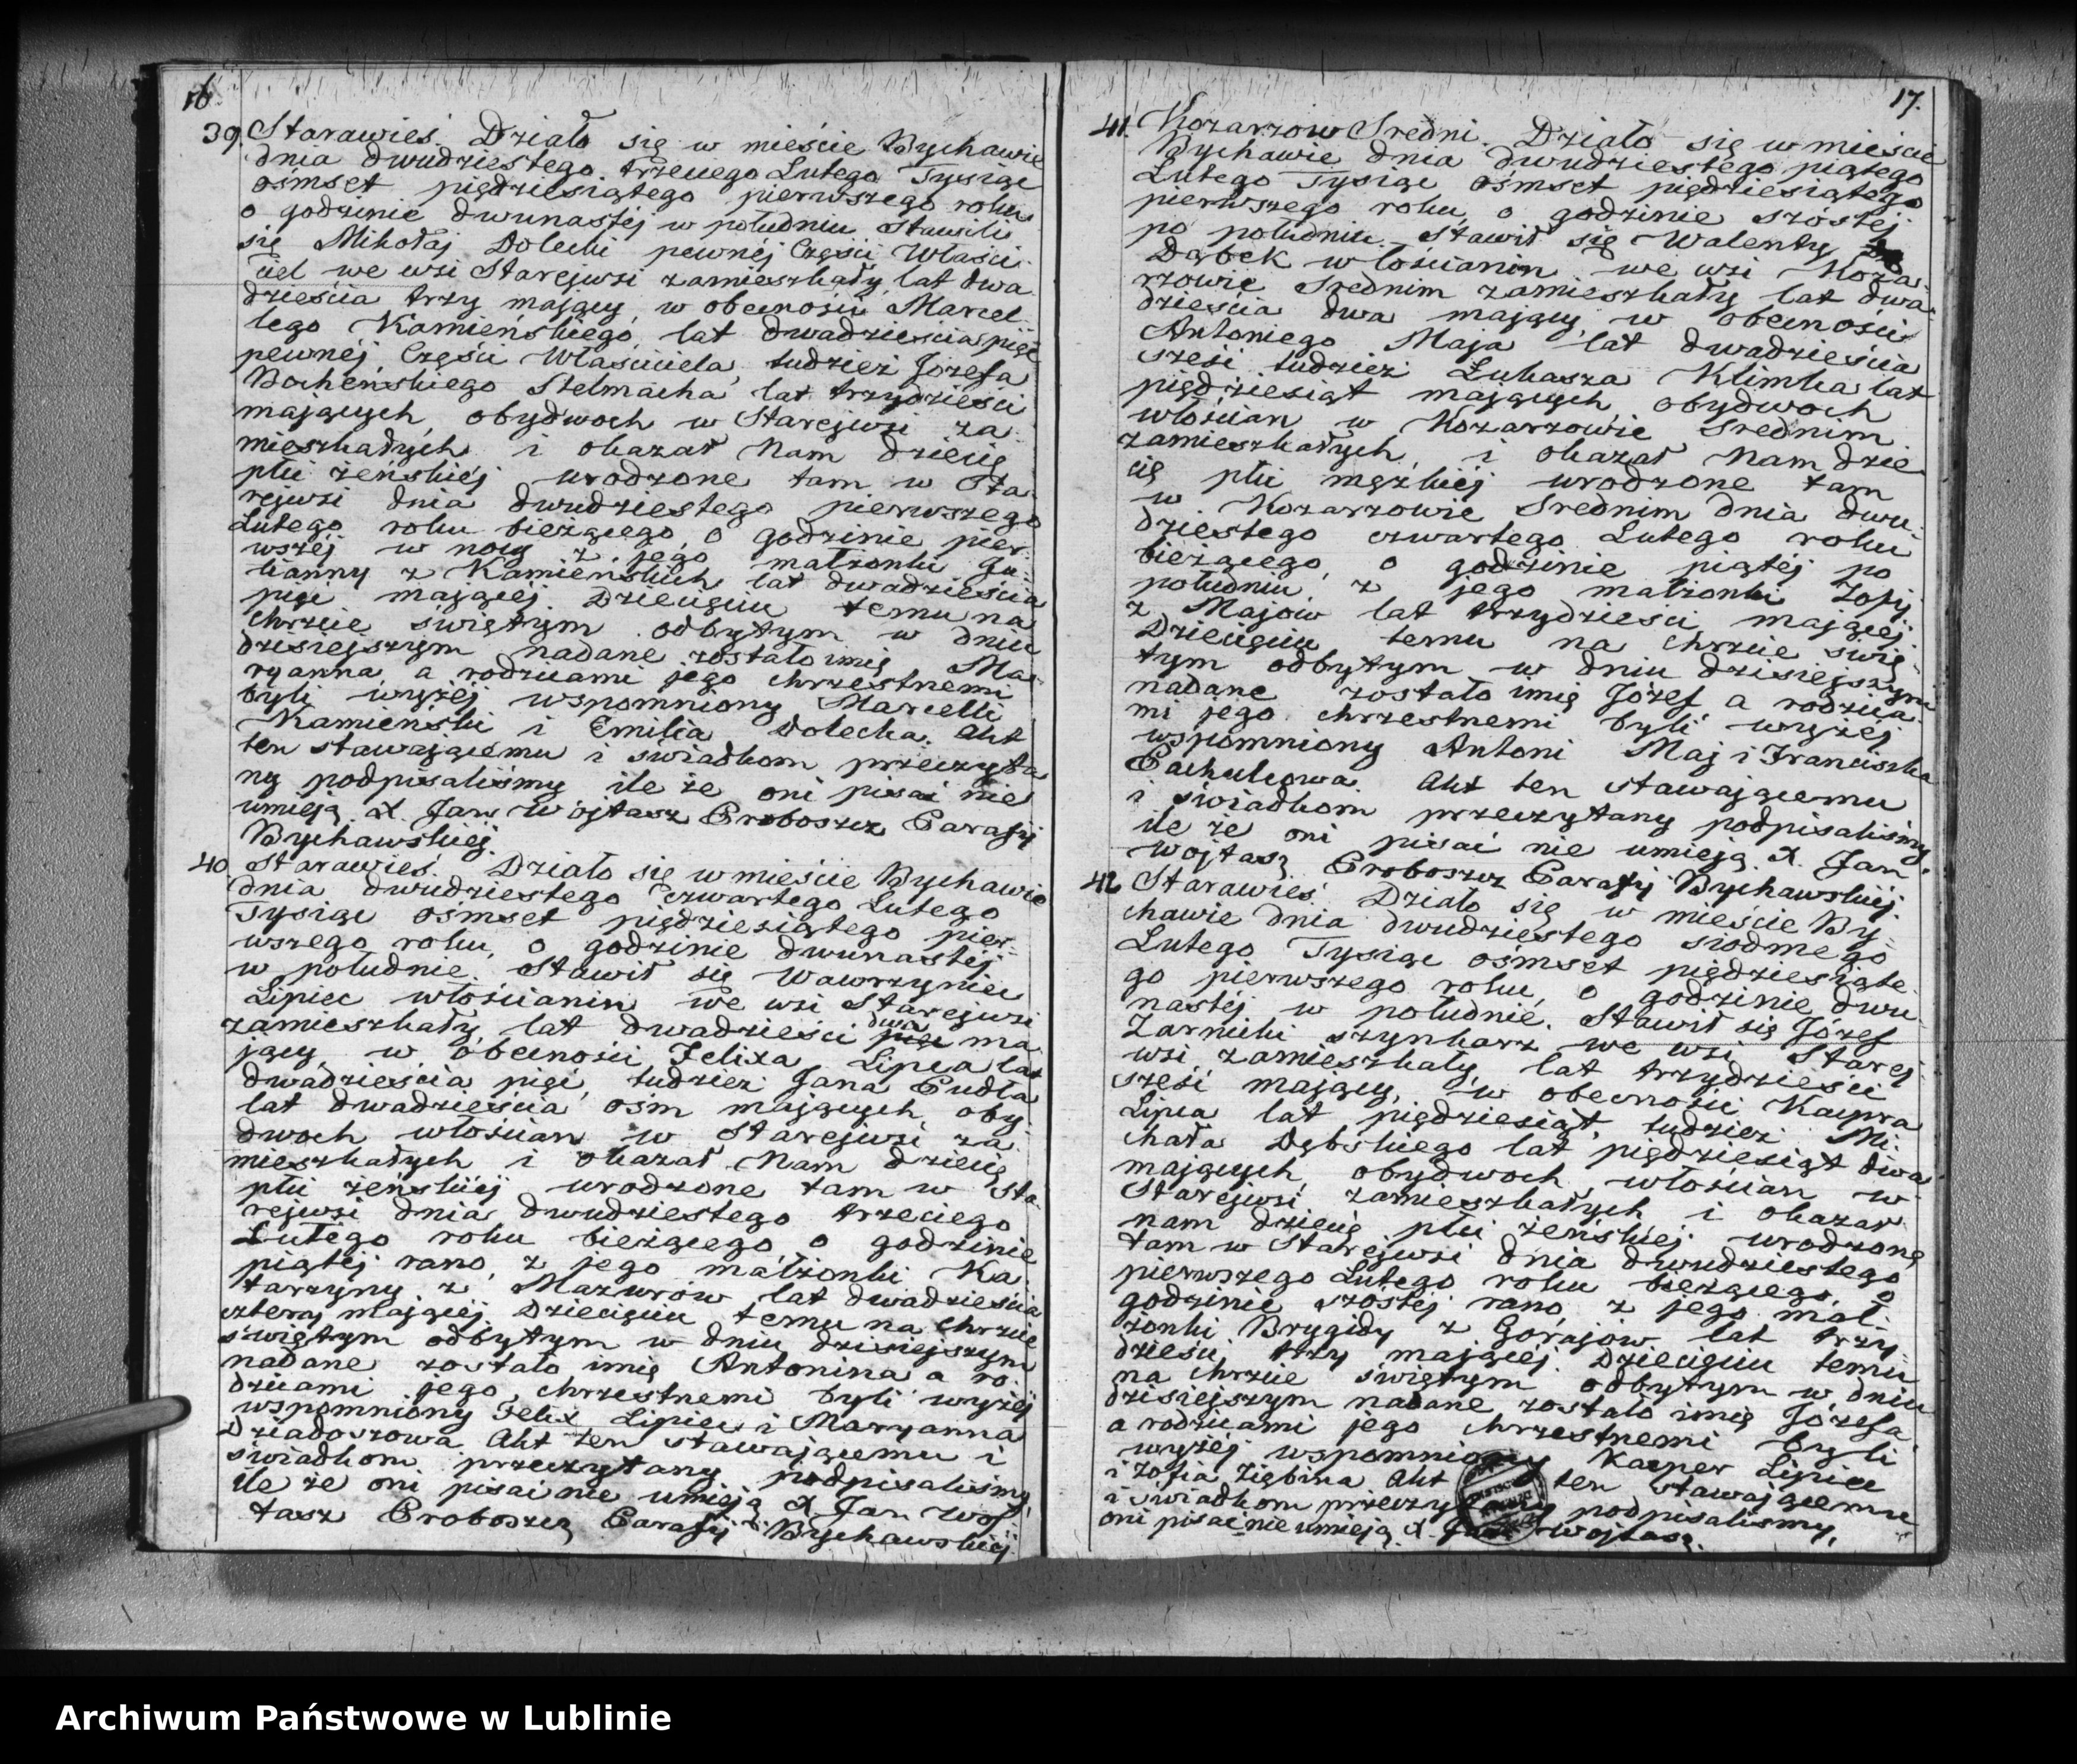 16
39. Starawieś. Działo się w mieście Bychawie
dnia dwudziestego trzeciego Lutego Tysiąc
ośmset pięDziesiątego pierwszego roku
o godzinie dwunastéj w południu stawił
się Mikołaj Dolecki pewnéj Części Właści
ciel we wsi Starejwsi zamieszkały, lat dwa
dzieścia trzy mający, w obecności Marcel
lego Kamieńskiego, lat dwadzieścia pięć
pewnéj Części Właściciela, tudzież Józefa
Bocheńskiego Stelmacha lat trzydzieści
mających, obydwoch w Starejwsi za
mieszkałych i okazał Nam dziecię
płci żeńskiéj urodzone tam w Sta
rejwsi dnia dwudziestego pierwszego
Lutego roku bieżącego, o godzinie pier
wszéj w nocy z jego małżonki Ju
lianny z Kamieńskich lat dwadzieścia
pięć mającéj. Dziecięciu temu na
chrzcie świętym odbytym w dniu
dzisiejszym nadane zostało imię Ma
ryanna, a rodzicami jego chrzestnemi
byli wyżéj wspomniony Marcelli
Kamieński i Emilia Dolecka. Akt
ten stawającemu i świadkom przeczyta
ny podpisaliśmy ile że oni pisać nie
umieją. X. Jan Wojtasz Proboszcz Parafij
Bychawskiéj.
40. Starawieś. Działo się w mieście Bychawie
dnia dwudziestego czwartego Lutego
Tysiąc ośmset pięDziesiątego pier
wszego roku, o godzinie dwunastéj
w południe. Stawił się Wawrzyniec
Lipiec włościanin we wsi Starejwsi
zamieszkały, lat dwadzieści dwa ma
jący, w obecności Felixa Lipca lat
dwadzieścia pięć, tudzież Jana Pudła
lat dwadzieścia ośm mających, oby
dwoch włościan w Starejwsi za
mieszkałych i okazał Nam dziecię
płci żeńskiéj urodzone tam w Sta
rejwsi dnia dwudziestego trzeciego
Lutego roku bieżącego, o godzinie
piątéj rano, z jego małżonki Ka
tarzyny z Mazurów lat dwadzieścia
cztery mającéj. Dziecięciu temu na chrzcie
świętym odbytym w dniu dzisiejszym
nadane zostało imię Antonina a ro
dzicami jego chrzestnemi byli wyżéj
wspomniony Felix Lipiec i Maryanna
Dziadoszowa. Akt ten stawającemu i
świadkom przeczytany podpisaliśmy
ile że oni pisać nie umieją X. Jan Woj
tasz Proboszcz Parafij Bychawskiéj.
17.
41. Kozarzow Sredni. Działo się w mieście
Bychawie dnia dwudziestego piątego
Lutego Tysiąc ośmset pięDziesiątego
pierwszego roku, o godzinie szóstéj
po południu. Stawił się Walenty
Dąbek włościanin we wsi Koza
rzowie Srednim zamieszkały lat dwa
dzieścia dwa mający, w obecności
Antoniego Maja lat dwadzieścia
sześć tudzież Łukasza Klimka lat
pięDziesiąt mających, obydwoch
włościan w Kozarzowie Srednim
zamieszkałych, i okazał Nam dzie
cię płci męzkiéj urodzone tam
w Kozarzowie Srednim dnia dwu
dziestego czwartego Lutego roku
bieżącego, o godzinie piątéj po
południu, z jego małżonki Zofij
z Majow lat trzydzieści mającéj.
Dziecięciu temu na chrzcie świę
tym odbytym w dniu dzisiejszym
nadane zostało imię Józef a rodzica
mi jego chrzestnemi byli wyżéj
wspomniony Antoni Maj i Franciszka
Pachulcowa. Akt ten stawającemu
i świadkom przeczytany podpisaliśmy,
ile że oni pisać nie umieją. X. Jan
Wojtasz Proboszcz Parafij Bychawskiéj.
42 Starawieś. Działo się w mieście By
chawie dnia dwudziestego siódmego
Lutego Tysiąc ośmset pięDziesiąte
go pierwszego roku, o godzinie dwu
nastéj w południe. Stawił się Józef
Żarnicki szynkarz we wsi Starej
wsi zamieszkały, lat trzydzieści
sześć mający, w obecności Kacpra
Lipca lat pięDziesiąt, tudzież Mi
chała Dębskiego lat pięDziesiąt dwa
mających, obydwoch włościan w
Starejwsi zamieszkałych i okazał
nam dziecię płci żeńskiéj urodzone
tam w Starejwsi dnia dwudziestego
pierwszego Lutego roku bieżącego, o
godzinie szóstéj rano z jego mał
żonki Brygidy z Gorajów lat trzy
dzieści trzy mającéj. Dziecięciu temu
na chrzcie świętym odbytym w dniu
dzisiejszym nadane zostało imię Józefa
a rodzicami jego chrzestnemi byli
wyżéj wspomniony Kacper Lipiec
i Zofia Ziębina Akt ten stawającemu
i świadkom przeczytany podpisaliśmy,
oni pisać nie umieją. X. Jan Wojtasz.
Archiwum Państwowe w Lublinie